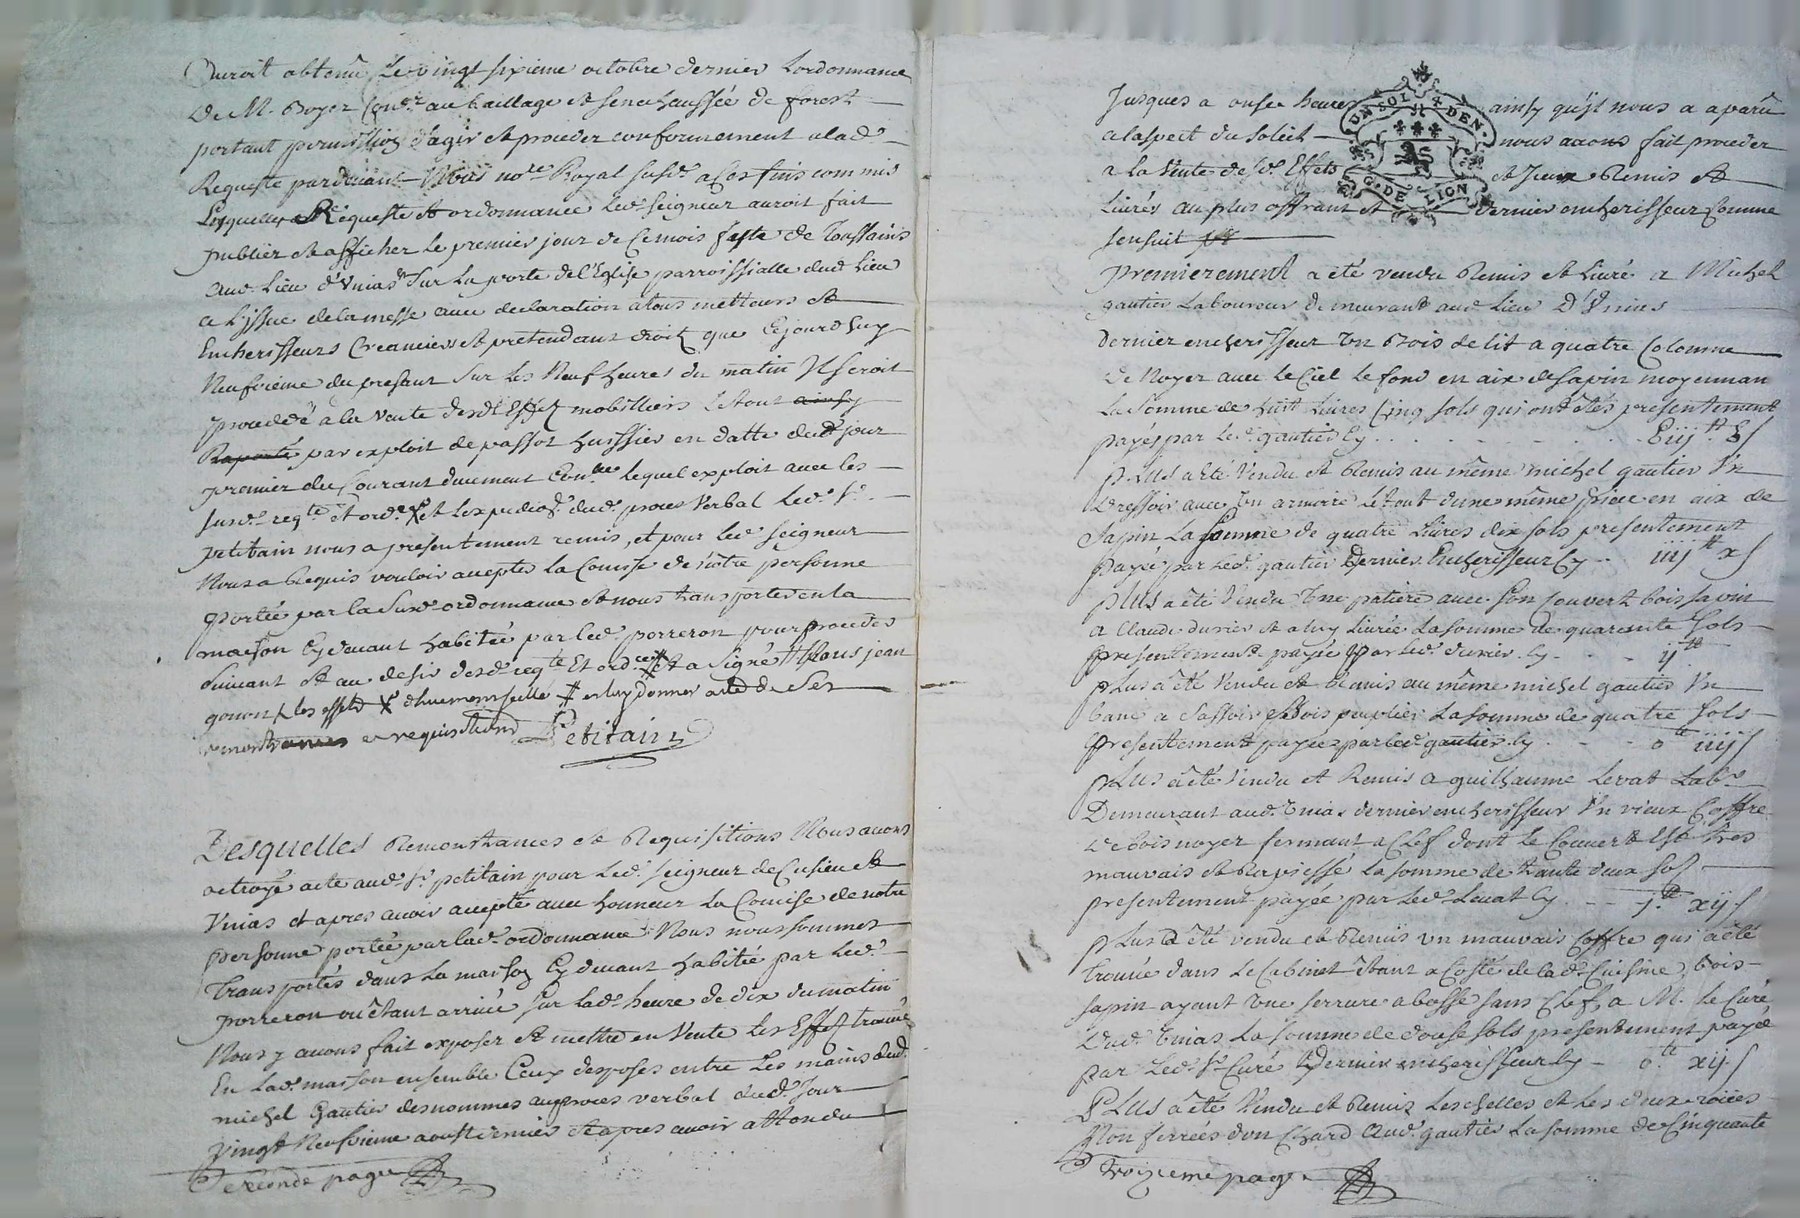 Auroit obtenu Le vingt sixieme octobre dernier Lordonnance
De M. Boyer Con.er au bailliage et senechaussée de forest
portant permission d'agir et proceder conformement a lad.e
Requeste pardevant Nous no.re Royal susd. a Ces fins commis
Lesquelles Requeste et ordonnance led. seigneur auroit fait
publier et afficher le premier jour de Ce mois feste de Toussains
aud. Lieu d'Unias Sur La porte de l'Eglise parroissialle dud. Lieu
a L'issue de la messe avec declaration a tous metteurs et
Encherisseurs Creanciers et pretendant droit que Cejourd'huy
Neufvieme du present sur les Neuf heures du matin Il seroit
procedé a la vente desd. Effets mobilliers Le tout ainsy
Raporté par exploit de passot huissier en datte dud. jour
premier du Courant duement Con.lle lequel exploit avec les
susd. req.te et ord.ce et L'expedi.on dud. proces verbal Led. S.r
petitain nous a presentement remis, et pour led. seigneur
Nous a Requis vouloir accepter la Comise de nôtre personne
portée par la Susd. ordonnance et nous transporter en la
maison Cy devant habitée par led. porreron pour proceder
Suivant et au desir desd. req.te Et ord.ce et a Signé Nous jean
gonon les effets d'heumemseille # et luy donner acte de Ses
remontrances et requisitions Petitain
Desquelles Remontrances et Requisitions Nous avons
octroyé acte aud. S.r petitain pour Led. seigneur de Cusieu et
Unias et apres avoir accepté avec honneur La Comise de notre
personne portée par lad. ordonnance Nous nous sommes
transportés dans La maison Cy devant habitée par Led.
porreron ou êtant arrivé sur lad. heure de dix du matin
Nous y avons fait exposer et mettre en Vente les Effets trouvé
En lad. maison ensemble Ceux deposés entre Les mains dud.
michel Gautier denommes au proces verbal dud. jour
vingt Neufvieme aoust dernier et apres avoir attendu
Seconde page
Jusques a onse heures ainsy qu'jl nous a aparu
UN SOL X DEN.
G. DE LION
a laspect du soleil nous avons fait proceder
a La Vente desd. Effets et Iceux Remis et
Livrés au plus offrant et dernier encherisseur Comme
sensuit
Premierement a été vendu Remis et Livré a Michel
gautier Laboureur demeurant aud. Lieu D'Unias
Dernier encherisseur Un Bois de lit a quatre Colomne
De Noyer avec Le Ciel Le fond en aix de sapin moyennan
La Somme de huit Livres Cinq sols qui ont étés presentement
payés par Led. gautier Cy . . . . . . Viij.tt V s
Plus a été Vendu et Remis au même michel gautier Vn
Dressoir avec Vn armoire Le tout d'une même piece en aix de
Sapin La Somme de quatre Livres dix sols presentement
payé par Led. gautier Dernier Encherisseur Cy . . iiij tt x s
Plus a été Vendu Vne patiere avec son Couvert bois sapin
a Claude durier et a luy Livrée La somme de quarente sols
presentement payée par Led. durier Cy . . . ij tt
Plus a été Vendu et Remis au même michel gautier Vn
banc a s'assoir Bois peuplier La somme de quatre sols
presentement payée par led. gautier Cy . . . o tt iiij s
Plus a été Vendu et Remis a guilhaume Levat Lab.r
Demeurant aud. Unias dernier encherisseur Vn vieux Coffre
de bois noyer fermant a Clef dont le Couvert est tres
mauvais et Rapiessé La somme de trante deux sol
presentement payée par Led. Levat Cy . . . j.tt xij s
Plus a été vendu et Remis vn mauvais Coffre qui a été
trouvée dans Le Cabinet êtant a Costé de lad. Cuisine, bois
sapin ayant Vne serrure a bosse sans Clef a M. le Curé
Dud. Unias La somme de douse sols presentement payé
par Led. S.r Curé Dernier encherisseur Cy . . o.tt xij s
Plus a été Vendu et Remis Les chelles et Les deux roües
Non ferrées d'un Chard aud. gautier La somme de Cinquante
Troizieme page